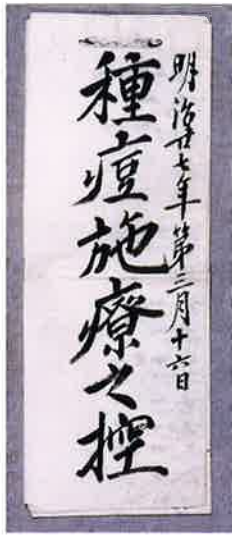 明治廿七年第三月十六日
種痘施療之控